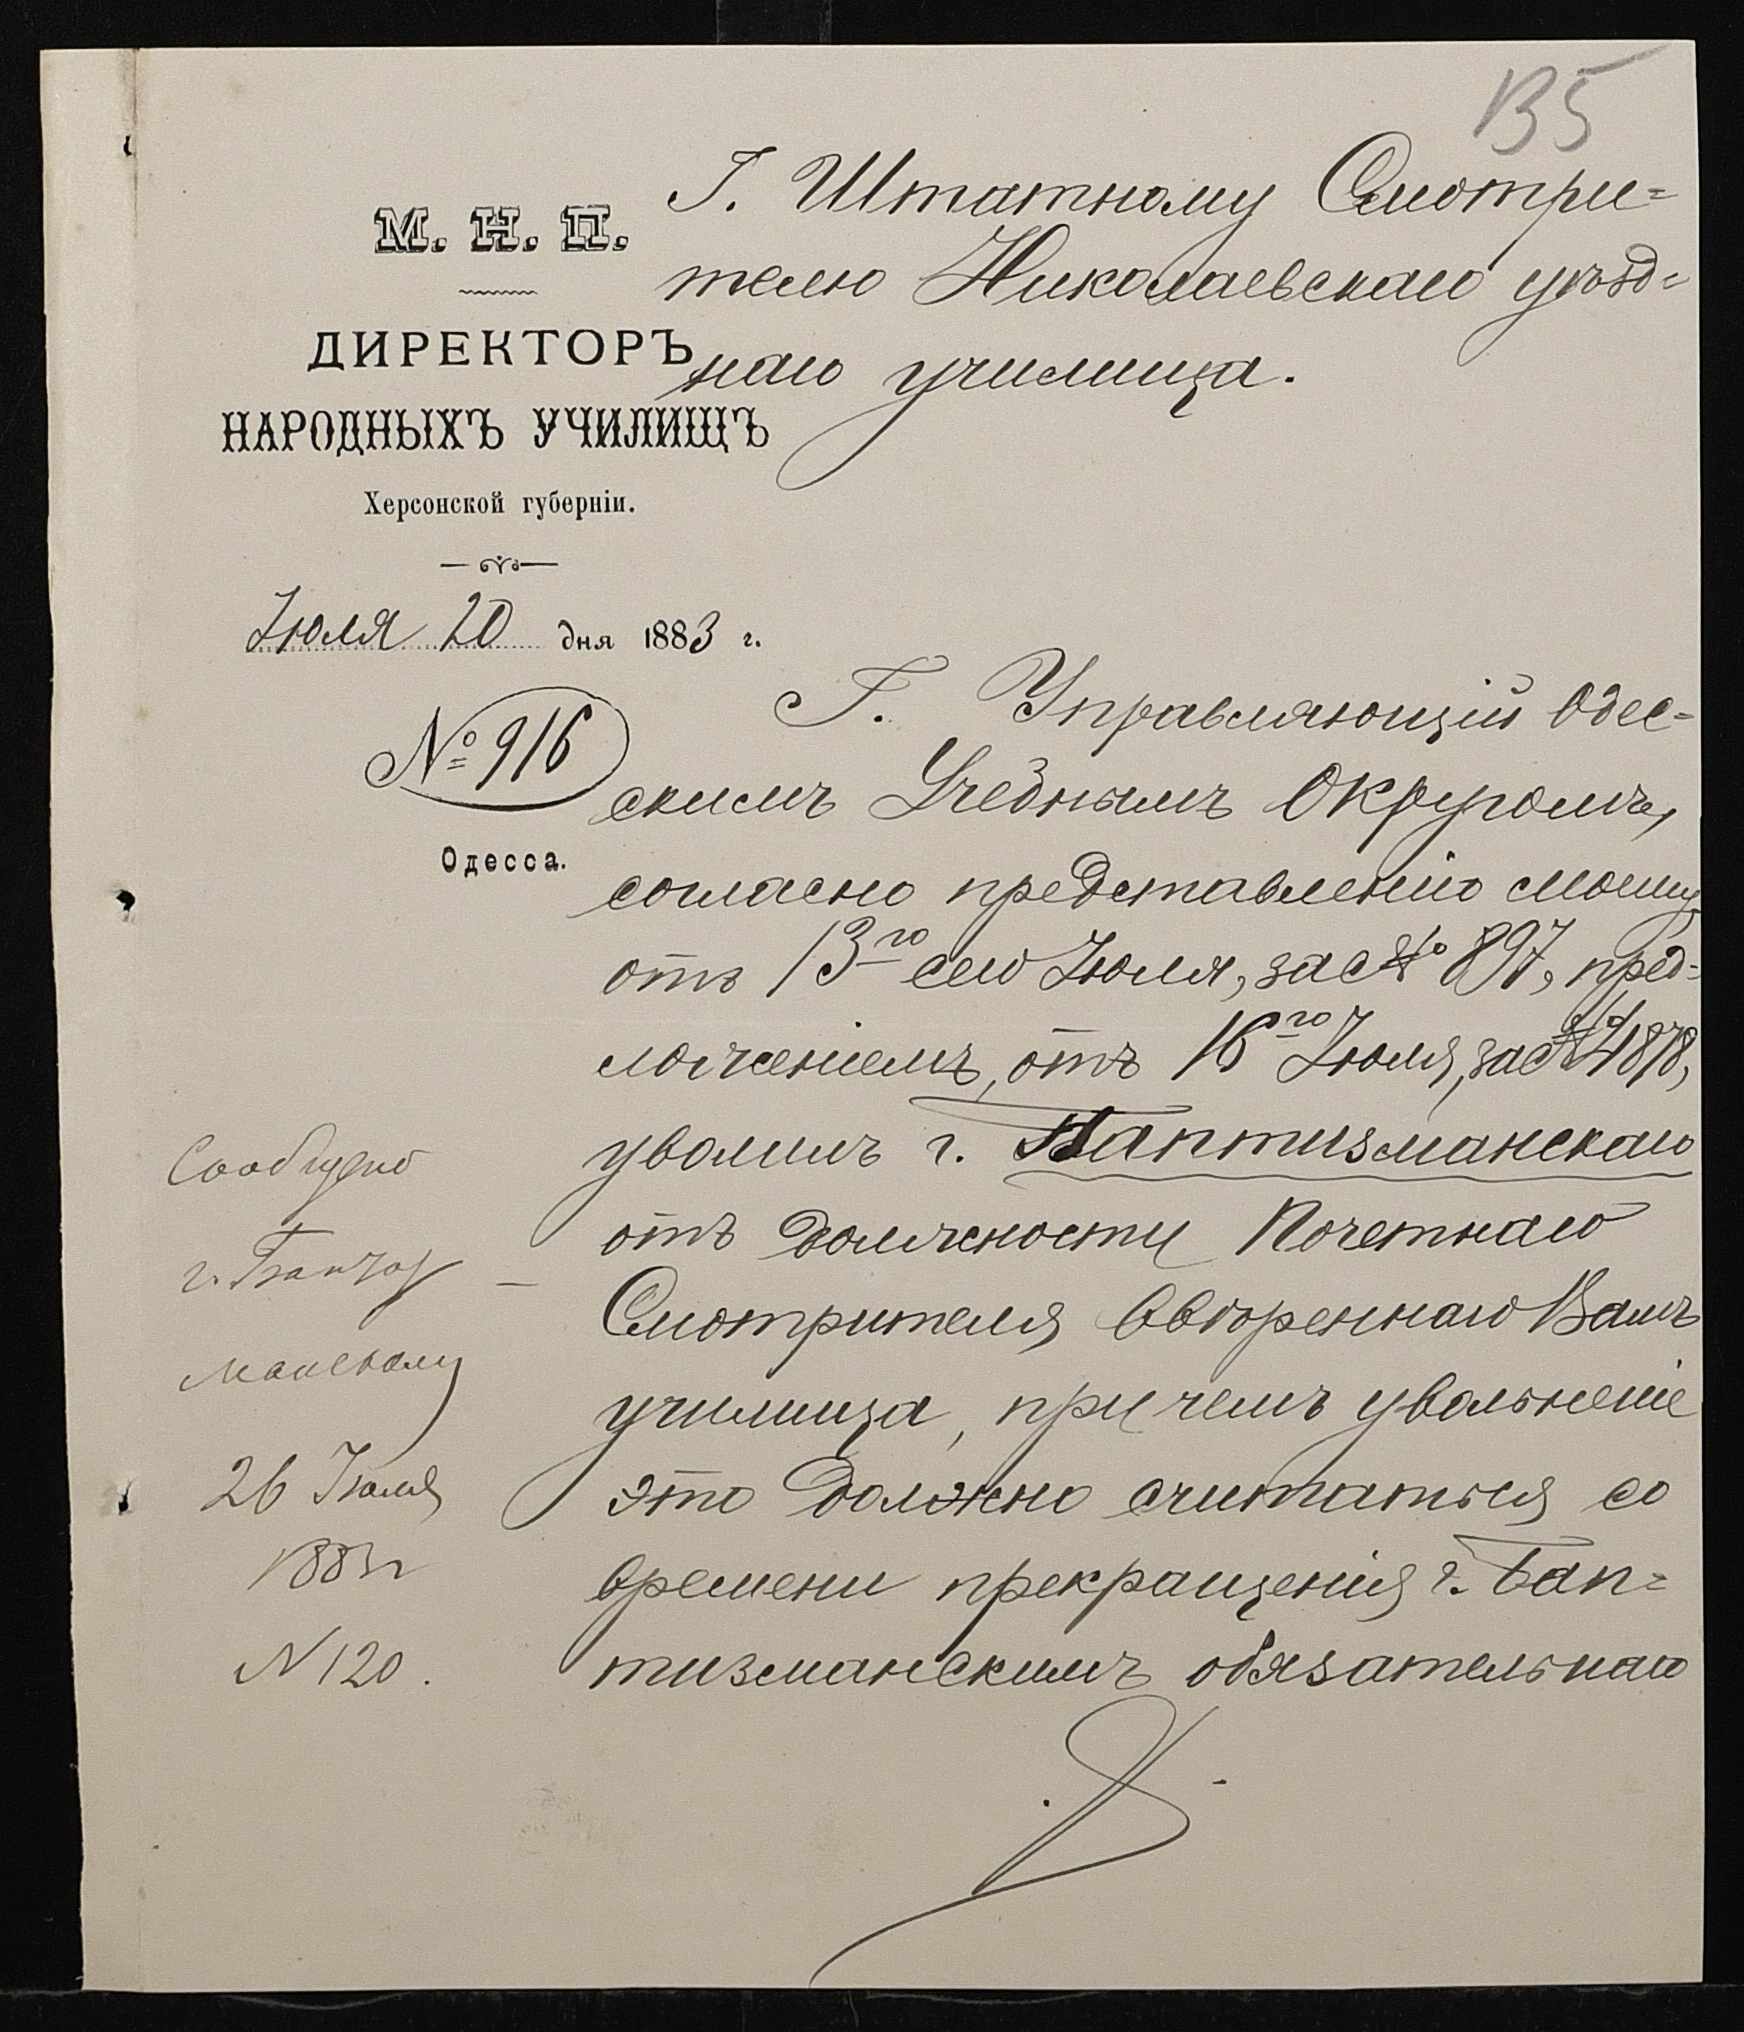 135
М. Н. П.
ДИРЕКТОРЪ
НАРОДНЫХЪ УЧИЛИЩЪ
Херсонской губерніи.
Іюля 20 дня 1883 г.
№ 916
Одесса.
Г. Штатному Смотри=
телю Николаевскаго уѣзд=
наго училища.
Г. Управляющій Одес=
скимъ Учебнымъ Округомъ,
согласно представленію моему
отъ 13го сего Іюля, за № 897, пред=
ложеніемъ, отъ 16го Іюля, за № 4878,
уволилъ г. Баптизманскаго
отъ должности Почетнаго
Смотрителя ввѣреннаго Вамъ
училища, при чемъ увольненіе
это должно считаться со
времени прекращенія г. Бап=
тизманскимъ обязательнаго
Сообщено
г. Баптиз
манскому
26 Іюля
1883 г
N 120.